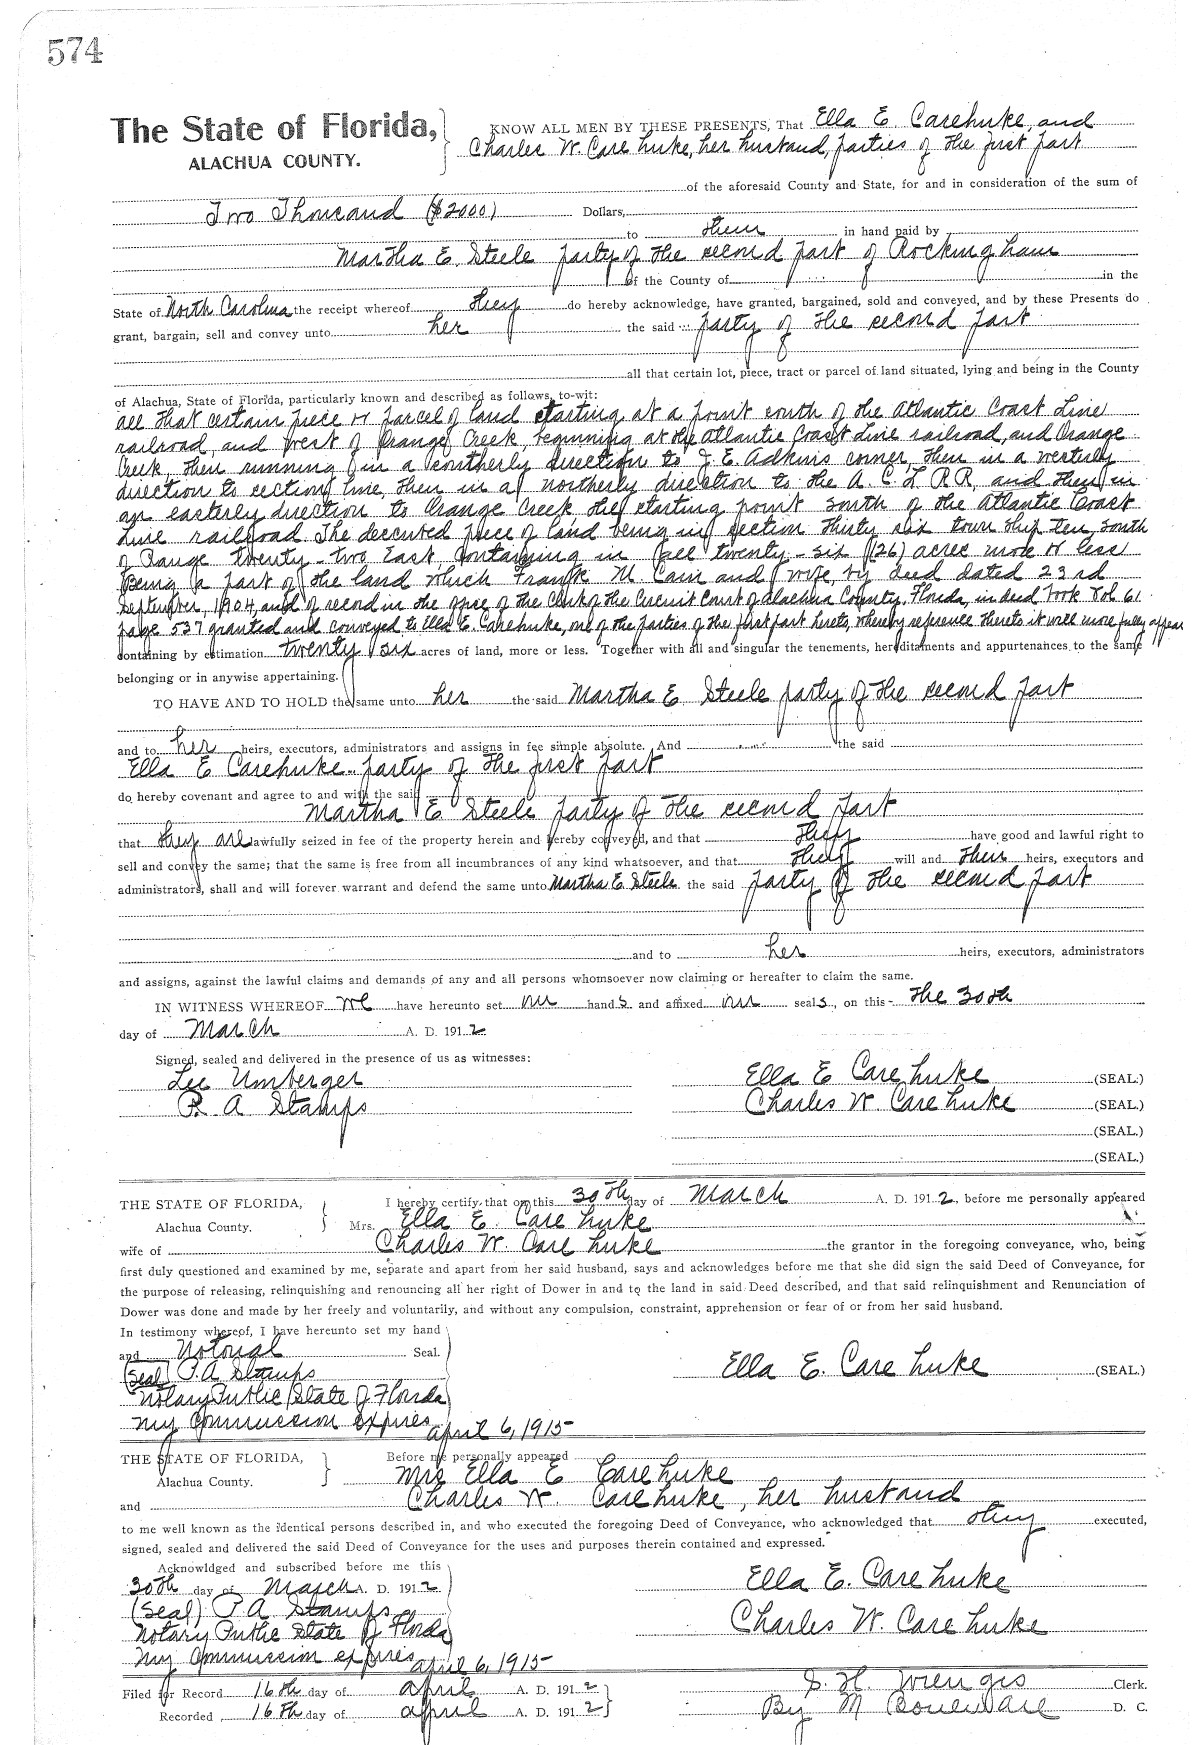 574
The State of Florida,
ALACHUA COUNTY.
KNOW ALL MEN BY THESE PRESENTS, That Ella E. Carehuke, and
Charles W. Carehuke, her husband, parties of the first part
of the aforesaid County and State, for and in consideration of the sum of
Two Thousand ($2000) Dollars,
to them in hand paid by
Martha E. Steele party of the second part of Rockingham
of the County of in the
State of North Carolina the receipt whereof they do hereby acknowledge, have granted, bargained, sold and conveyed, and by these Presents do
grant, bargain, sell and convey unto her the said party of the second part
all that certain lot, piece, tract or parcel of land situated, lying and being in the County
of Alachua, State of Florida, particularly known and described as follows, to-wit:
all that certain piece or parcel of land starting at a point south of the Atlantic Coast Line
railroad, and west of Orange Creek, beginning at the Atlantic Coast Line railroad, and Orange
Creek, then running in a southerly direction to J. E. Adkins corner, then in a westerly
direction to section line, then in a northerly direction to the A. C. L. R.R, and then in
an easterly direction to Orange Creek the starting point south of the Atlantic Coast
Line railroad. The deeded piece of land being in section thirty six township ten south
of Range twenty-two East, containing in all twenty-six (26) acres more or less
Being a part of the land which Frank M Cain and wife, by deed dated 23rd
September, 1904, and of record in the office of the Clerk of the Circuit Court of Alachua County, Florida, in deed book Vol 61
page 537 granted and conveyed to Ella E. Carehuke, one of the parties of the first part hereto, whereby reference thereto it will more fully appear
containing by estimation twenty six acres of land, more or less. Together with all and singular the tenements, hereditaments and appurtenances to the same
belonging or in anywise appertaining.
TO HAVE AND TO HOLD the same unto her the said Martha E Steele party of the second part
and to her heirs, executors, administrators and assigns in fee simple absolute. And the said
Ella E Carehuke party of the first part
do hereby covenant and agree to and with the said
Martha E Steele party of the second part
that they are lawfully seized in fee of the property herein and hereby conveyed, and that they have good and lawful right to
sell and convey the same; that the same is free from all incumbrances of any kind whatsoever, and that they will and their heirs, executors and
administrators, shall and will forever warrant and defend the same unto Martha E Steele the said party of the second part
and to her heirs, executors, administrators
and assigns, against the lawful claims and demands of any and all persons whomsoever now claiming or hereafter to claim the same.
IN WITNESS WHEREOF we have hereunto set our hands and affixed our seals, on this the 30th
day of March A. D. 1912
Signed, sealed and delivered in the presence of us as witnesses:
Lee Umberger
P. A Stamps
Ella E Carehuke (SEAL.)
Charles W. Carehuke (SEAL.)
(SEAL.)
(SEAL.)
THE STATE OF FLORIDA,
Alachua County.
I hereby certify that on this 30th day of March A. D. 1912, before me personally appeared
Mrs. Ella E. Carehuke
wife of Charles W. Carehuke the grantor in the foregoing conveyance, who, being
first duly questioned and examined by me, separate and apart from her said husband, says and acknowledges before me that she did sign the said Deed of Conveyance, for
the purpose of releasing, relinquishing and renouncing all her right of Dower in and to the land in said Deed described, and that said relinquishment and Renunciation of
Dower was done and made by her freely and voluntarily, and without any compulsion, constraint, apprehension or fear of or from her said husband.
In testimony whereof, I have hereunto set my hand
and Notorial Seal.
(Seal) P. A Stamps
Notary Public State of Florida
my commission expires april 6, 1915
Ella E. Carehuke (SEAL)
THE STATE OF FLORIDA,
Alachua County.
Before me personally appeared
Mrs Ella E Carehuke
and Charles W. Carehuke, her husband
to me well known as the identical persons described in, and who executed the foregoing Deed of Conveyance, who acknowledged that they executed,
signed, sealed and delivered the said Deed of Conveyance for the uses and purposes therein contained and expressed.
Acknowldged and subscribed before me this
30th day of March A. D. 1912
(Seal) P. A Stamps
Notary Public State of Florida
my commission expires april 6, 1915
Ella E. Carehuke
Charles W. Carehuke
Filed for Record 16th day of april A. D. 1912
Recorded 16th day of april A. D. 1912
S. H. Wienges Clerk.
By M Boulware D. C.